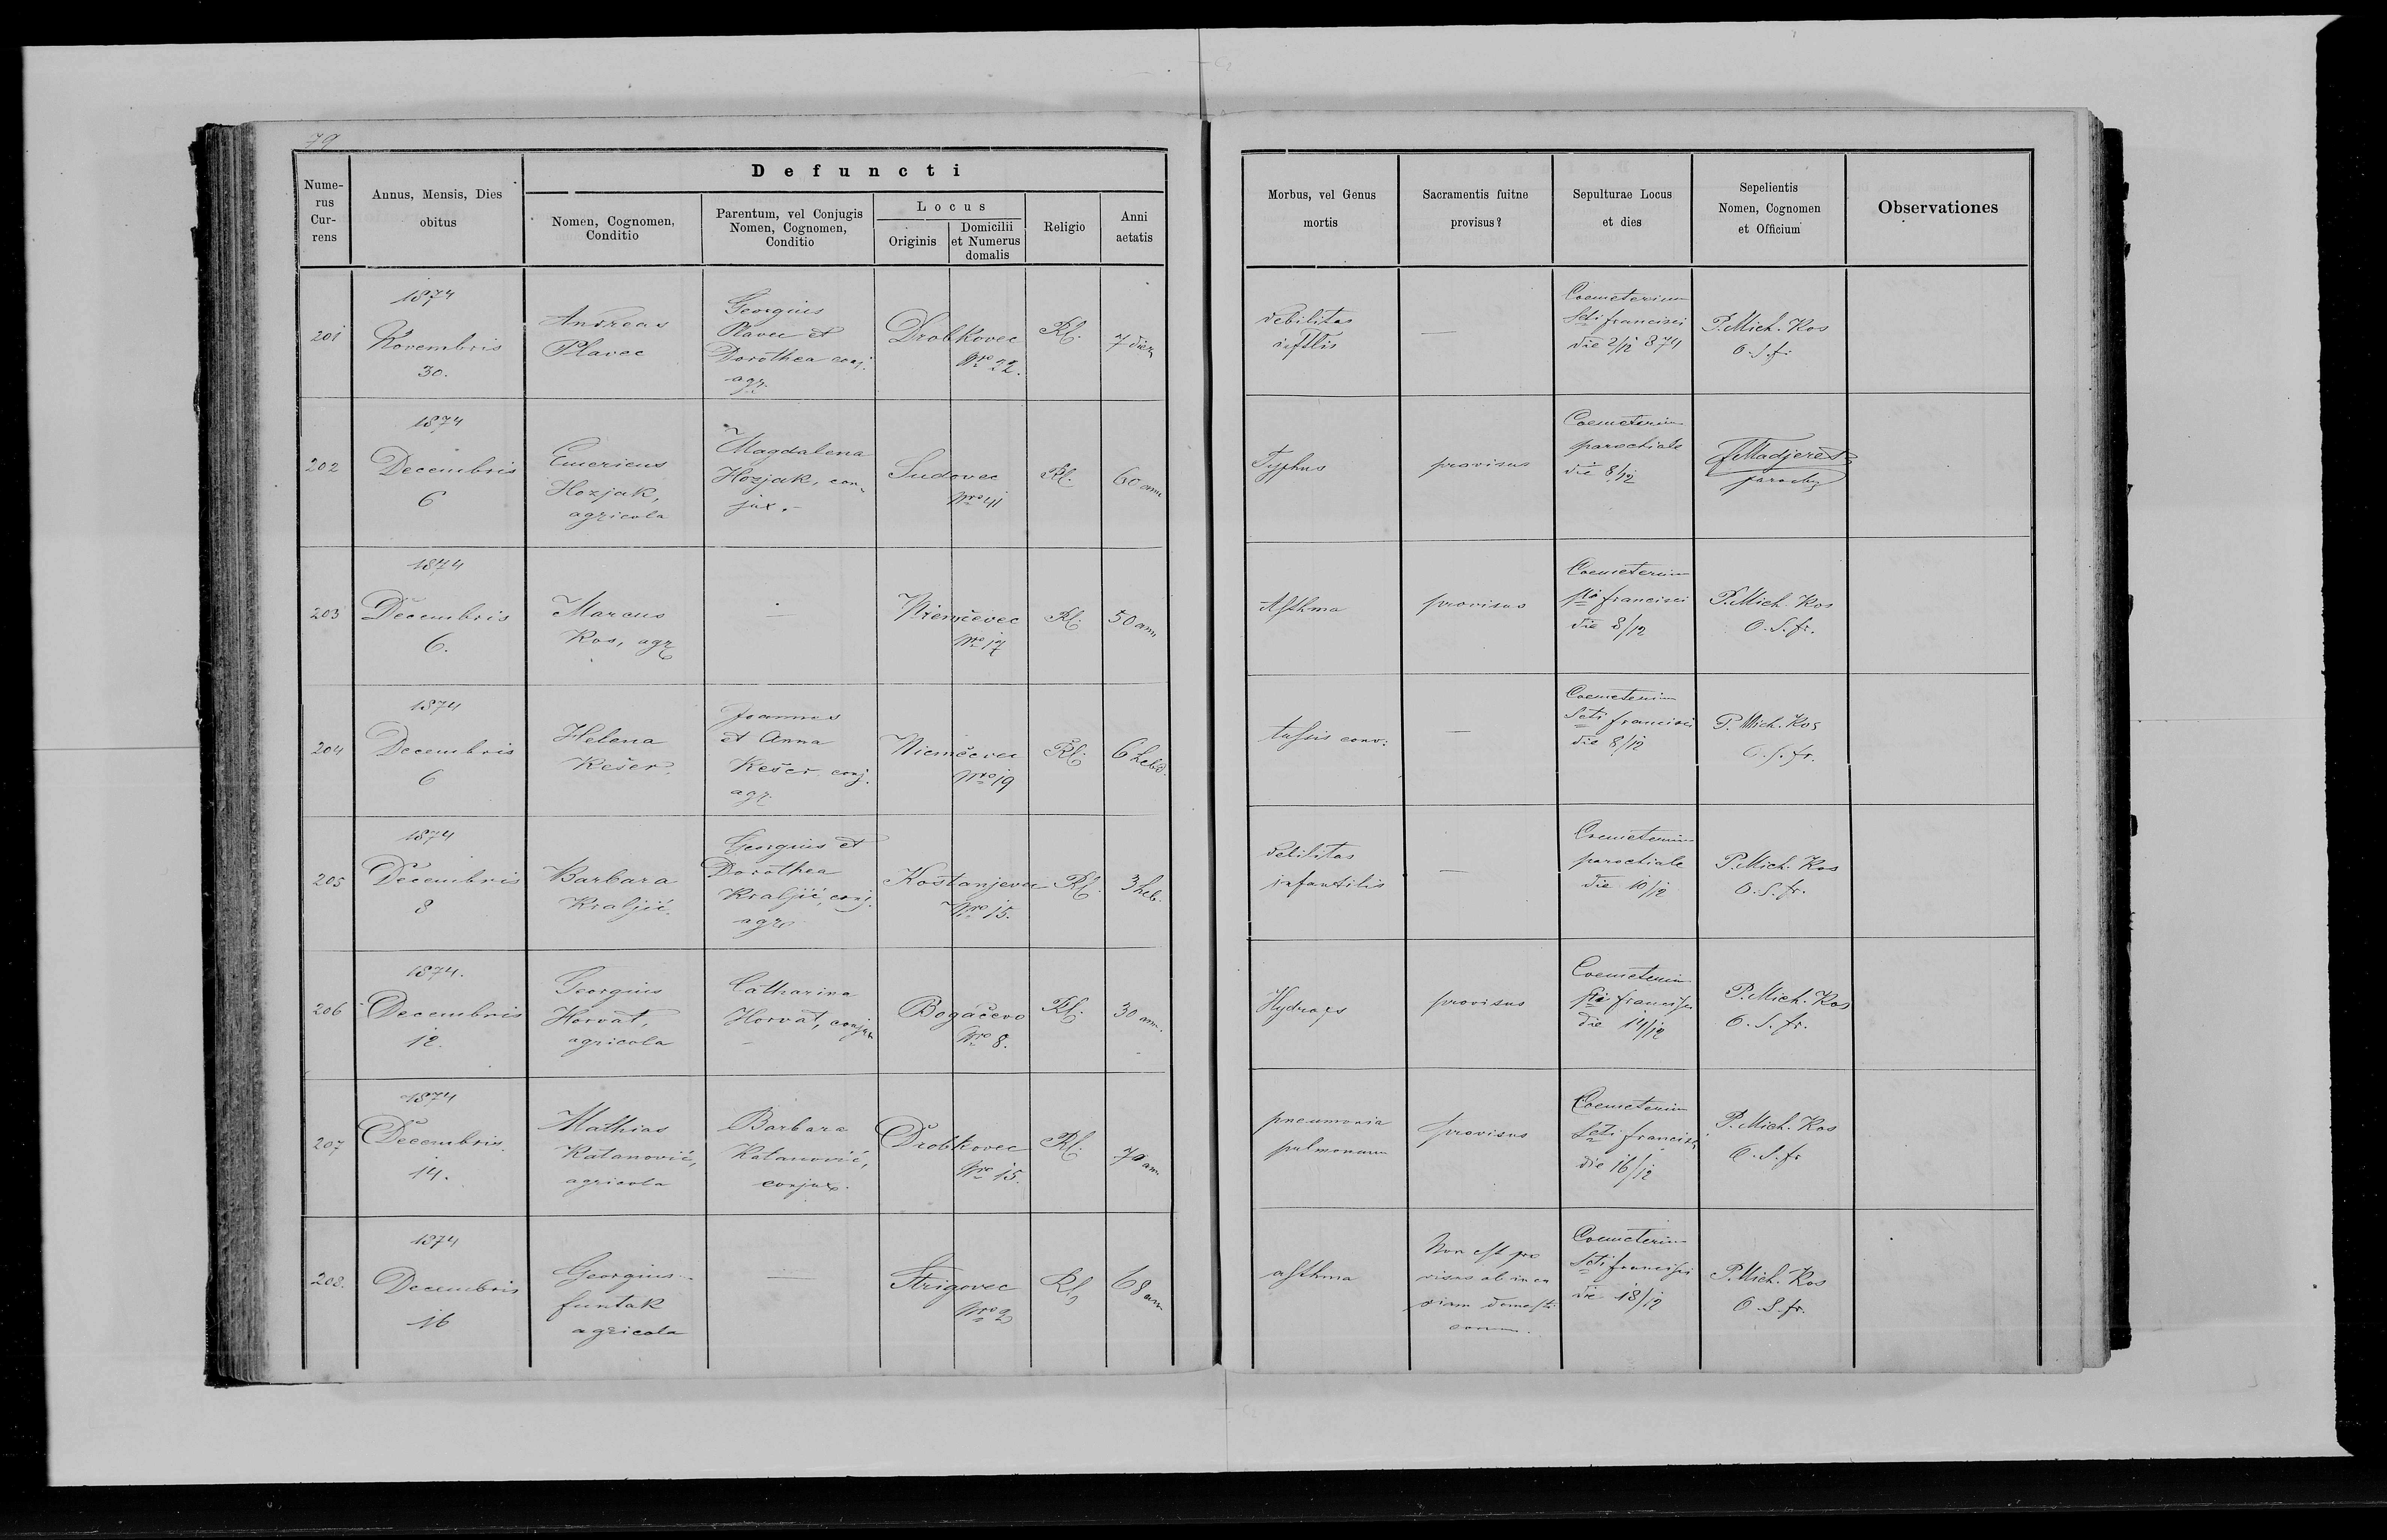 79
Defuncti
Nume-
rus
Cur-
rens
Annus, Mensis, Dies
obitus
Nomen, Cognomen,
Conditio
Parentum, vel Conjugis
Nomen, Cognomen,
Conditio
Locus
Originis
Domicilii
et Numerus
domalis
Religio
Anni
aetatis
Morbus, vel Genus
mortis
Sacramentis fuitne
provisus?
Sepulturae Locus
et dies
Sepelientis
Nomen, Cognomen
et Officium
Observationes
201
1874
Novembris
30.
Andreas
Plavec
Georgius
Plavec et
Dorothea conj.
agr.
Drobkovec
Nro 22.
Rk.
7 dier
debilitas
iftlis
—
Coemeterium
Scti francisci
die 2/12 874
P. Mich. Kos
O. S. fr.
202
1874
Decembris
6
Emericus
Hozjak,
agricola
Magdalena
Hozjak, con-
jux.-
Sudovec
Nro 41
Rk.
60 ann
Typhus
provisus
Coemeterium
parochiale
die 8/12
203
1874
Decembris
6.
Marcus
Kos, agr
—
Niemčevec
Nro 17
Rk.
50 ann
Asthma
provisus
Coemeterium
Sti francisci
die 8/12
P. Mich. Kos
O. S. fr.
204
1874
Decembris
6
Helena
Kešer.
Joannes
et Anna
Kešer conj.
agr.
Niemčevec
Nro 19
Rk.
6 hebd.
tussis conv.
—
Coemeterium
Scti francisci
die 8/12
P. Mich. Kos
O. S. fr.
205
1874
Decembris
8
Barbara
Kraljić.
Georgius et
Dorothea
Kraljić, conj.
agr
Kostanjevec
Nro 15.
Rk.
3 heb.
debilitas
infantilis
—
Coemeterium
parochiale
die 10/12
P. Mich. Kos
O. S. fr.
206
1874.
Decembris
12.
Georgius
Horvat,
agricola
Catharina
Horvat, conjux
Bogačevo
Nro 8.
Rk.
30 ann.
Hydrops
provisus
Coemeterium
Sti francisci
die 14/12
P. Mich. Kos
O. S. fr.
207
1874
Decembris.
14.
Mathias
Katanović,
agricola
Barbara
Katanović,
conjux.
Drobkovec
Nro 15.
Rk.
70 ann
pneumonia
pulmonum
provisus
Coemeterium
Scti francisci
die 16/12
P. Mich. Kos
O. S. fr
208.
1874
Decembris
16
Georgius
funtak
agricola
—
Strigovec
Nro 2
Rk
68 ann
asthma
Non est pro
visus ob incu
riam domesti
corum.
Coemeterium
Scti francisci
die 18/12
P. Mich. Kos
O. S. fr.